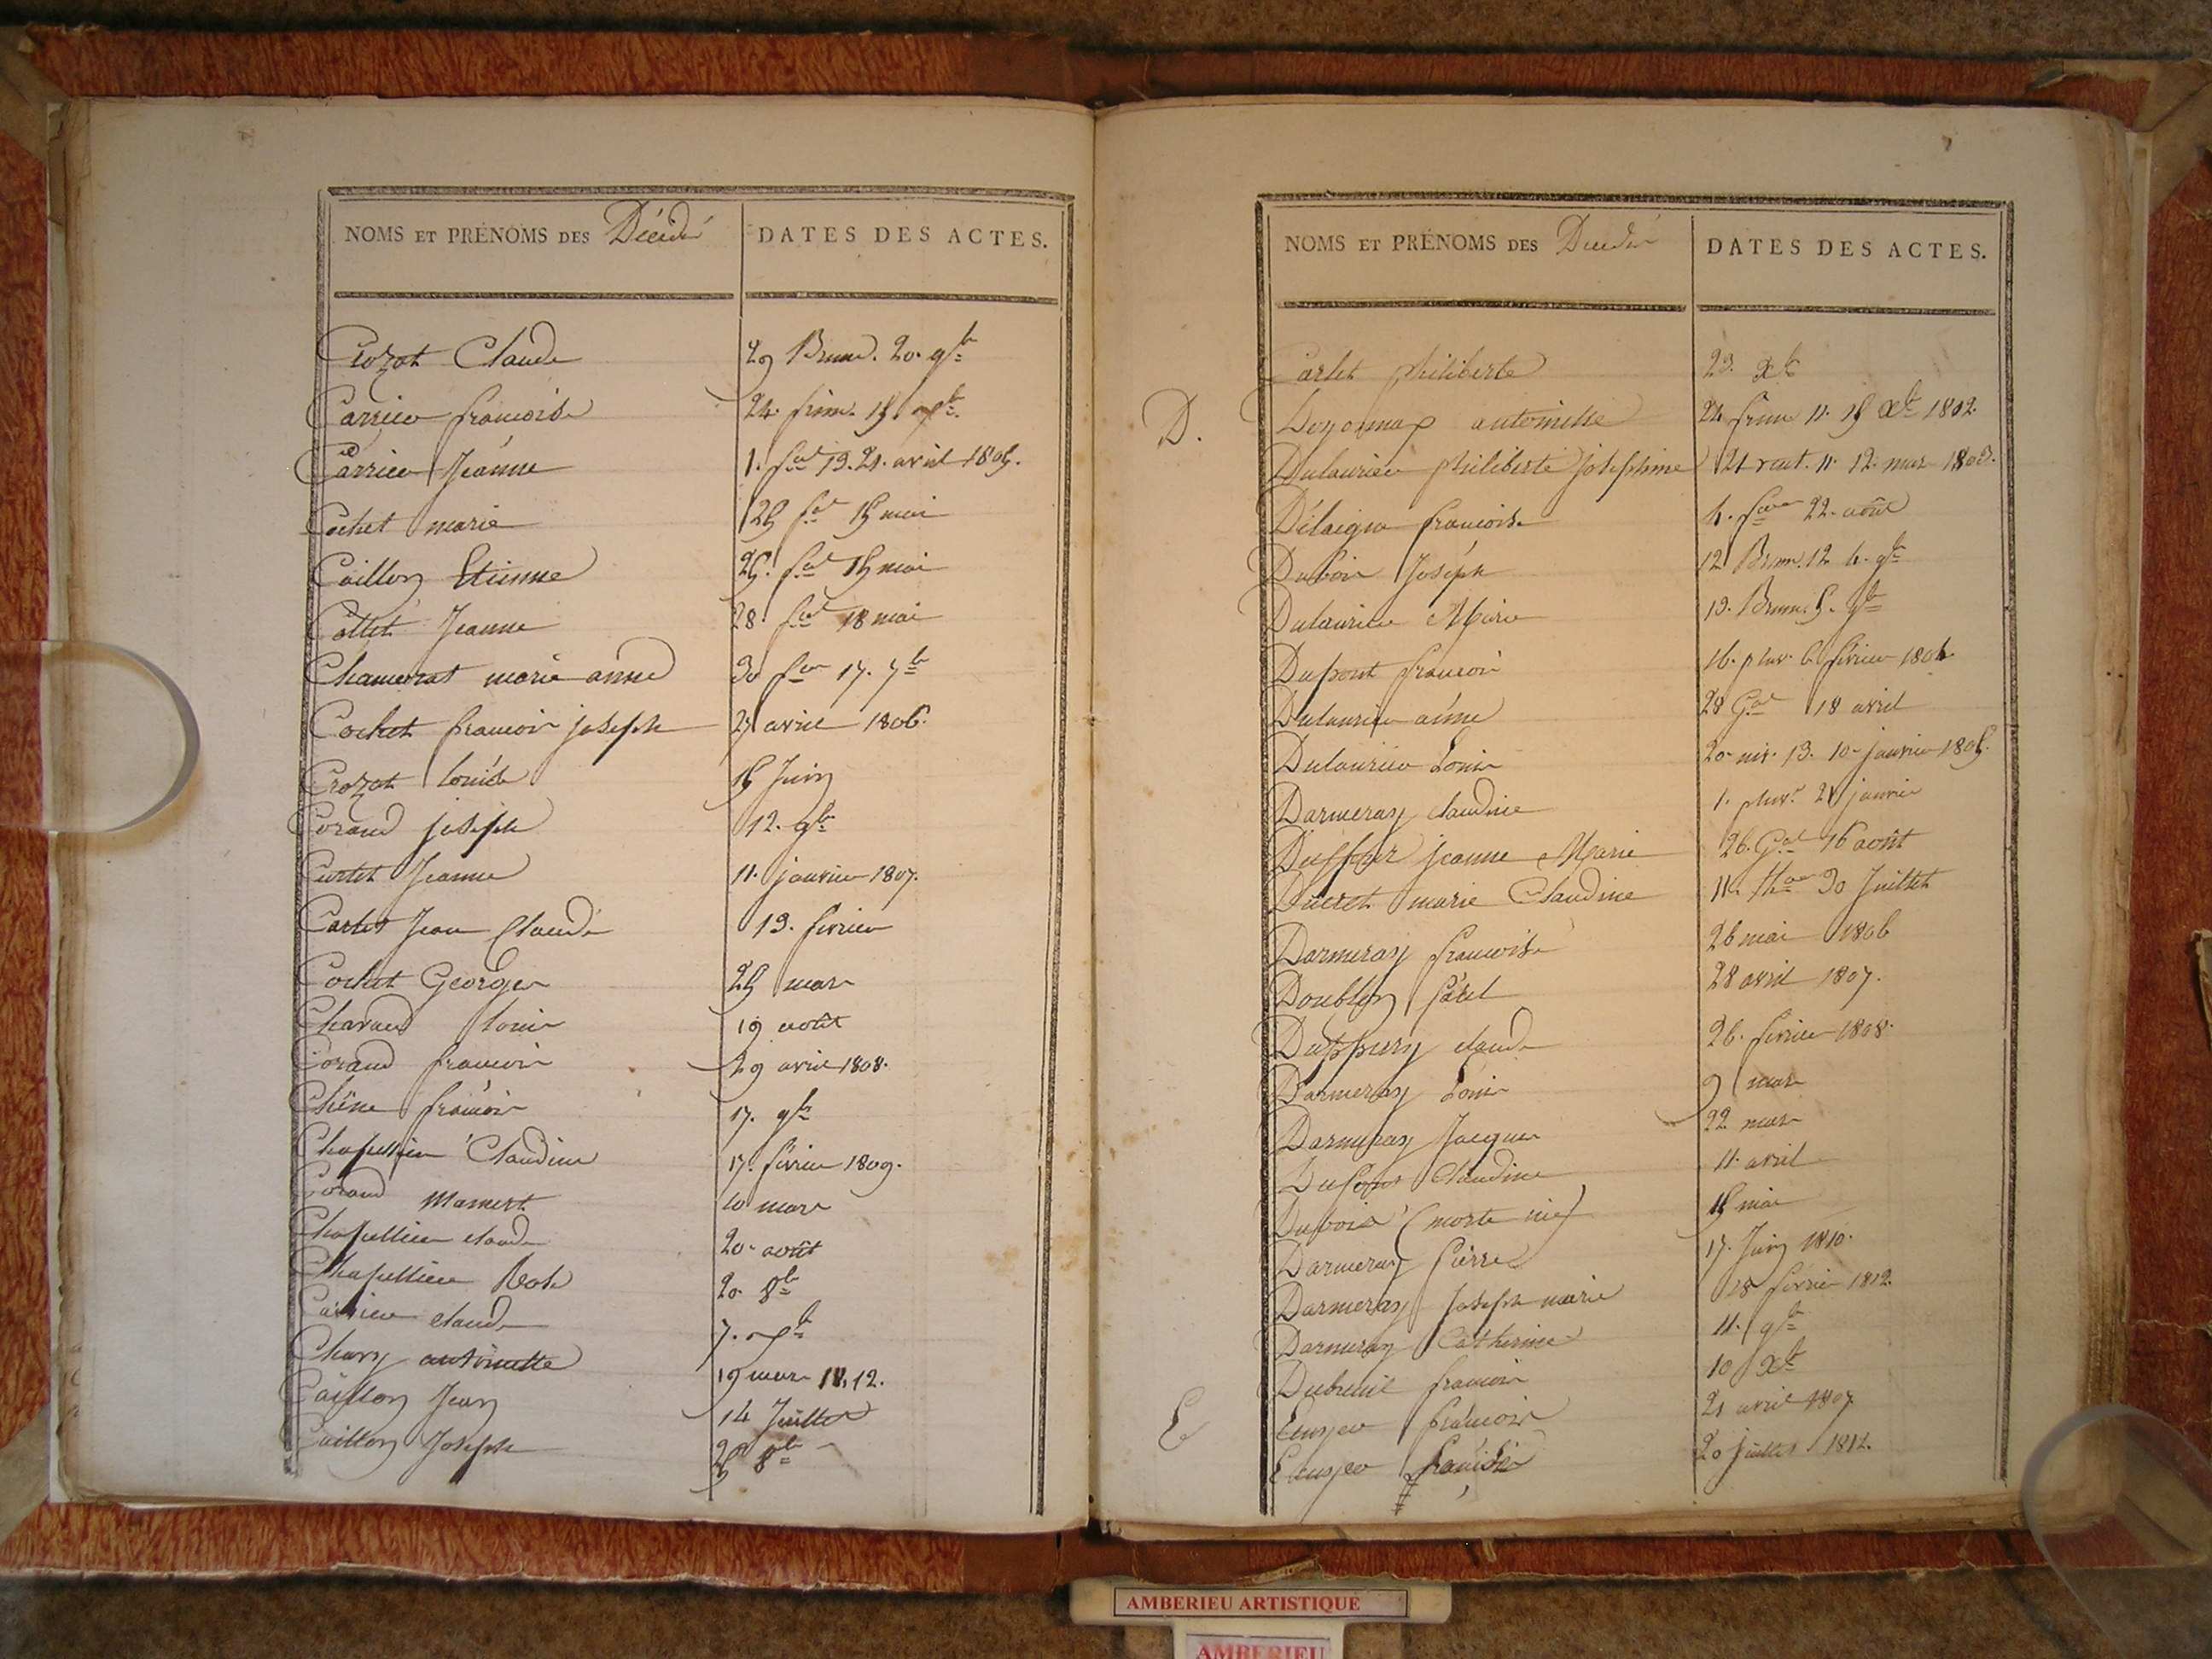 NOMS ET PRÉNOMS DES Décédés DATES DES ACTES.
Crozat Claude 29 Brum. 20. 9bre
Carrier francoise 24. frim. 15 xbre
Carrier Jeanne 1. flal 13. 21. avril 1805.
Cochet marie 25 flal 15 mai
Caillon Etienne 25. flal 15 mai
Collet Jeanne 28 flal 18 mai
Chamerat marie anne 30 for 17. 7bre
Cochet francois joseph 25 avril 1806.
Crozat louise 15 Juin
Corand joseph 12. 9bre
Curtet Jeanne 11. janvier 1807.
Carlet Jean Claude 13. fevrier
Cochet Georges 25 mars
Charaud louis 19 août
Corand francois 29 avril 1808.
Chêne francois 17. 9bre
Chapellier Claudine 17. fevrier 1809.
Corand Mamert 10 mars
Chapellier claude 20 août
Chapellier Rose 20 8bre
Carrier claude 7. xbre
Chary antoinette 19 mars 1812.
Caillon Jean 14 Juillet
Caillon Joseph 25 8bre
NOMS ET PRÉNOMS DES Décédés DATES DES ACTES.
Carlet philiberte 23. xbre
D. Doyonnax antoinette 24 frim 11. 15 xbre 1802.
Dulaurier philiberte josephine 21 vent. 11. 12. mars 1803.
Délaigue francoise 4. for 22. août
Dubois Joseph 12 Brum. 12 4. 9bre
Dulaurier Marie 13. Brum. 5. 9bre
Dupont francois 16. pluv. 6 fevrier 1804.
Dulaurier aimé 28 Gal 18 avril
Dulaurier Louis 20 niv. 13. 10 janvier 1805.
Darmeray claudine 1. pluv. 21 janvier
jeanne Marie 26. Gal 16 août
Ducret marie Claudine 11. thor 30 Juillet
Darmeray francoise 26 mai 1806
Doublon 28 avril 1807.
Duppery claude 26. fevrier 1808.
Darmeray Louis 9 mars
Darmeray Jacques 22 mars
Dufour Claudine 11. avril
Dubois (morte née) 15 mai
Darmeray pierre 17. Juin 1810.
Darmeray Joseph marie 18 fevrier 1812.
Darmeray Catherine 11. 9bre
Dubreuil francois 10 xbre
E francois 21 avril 1807
20 juillet 1812.
AMBERIEU ARTISTIQUE
AMBERIEU